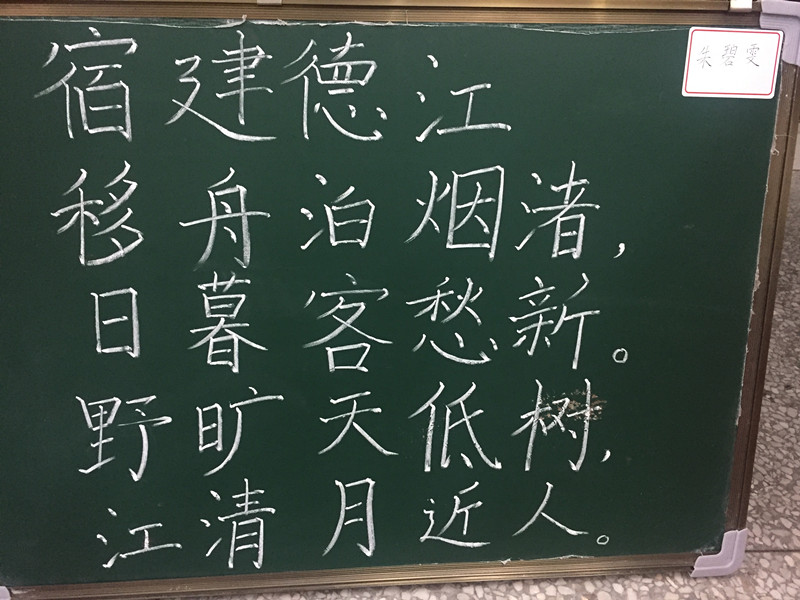 宿建德江
朱碧雯
移舟泊烟渚，
日暮客愁新。
野旷天低树，
江清月近人。